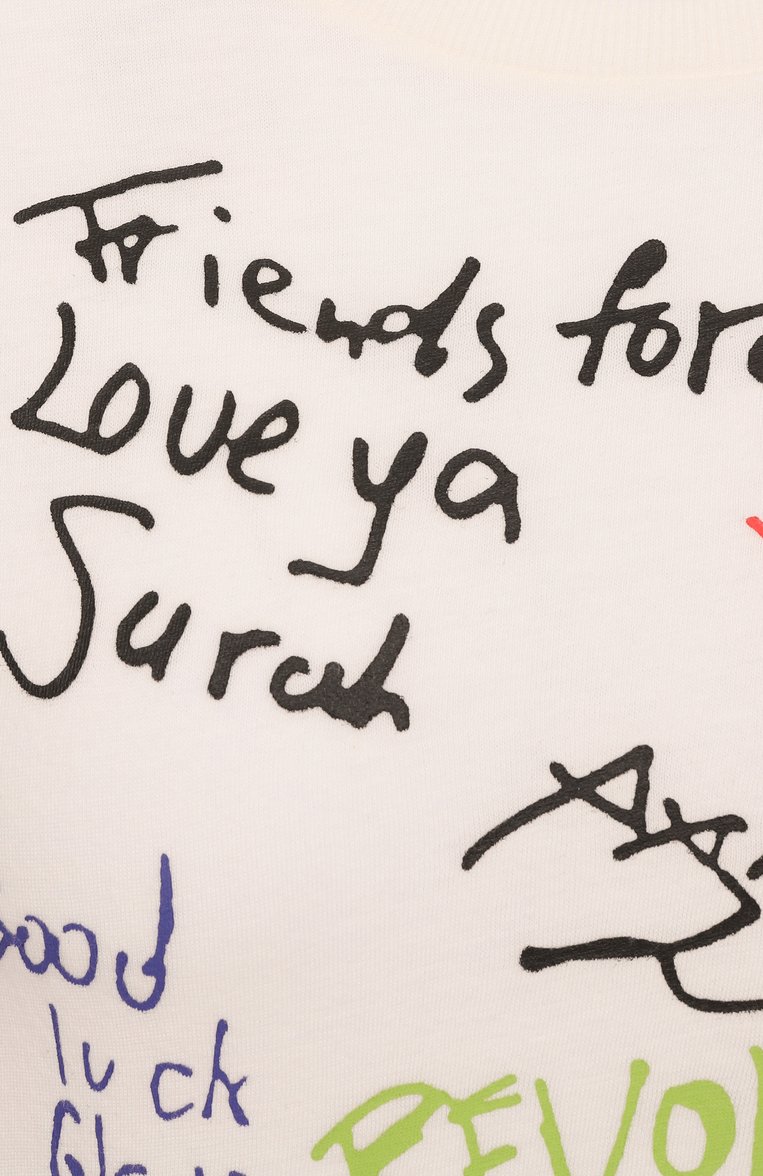 Friends fore
Love ya
Sarah
Good
luck
REVOL